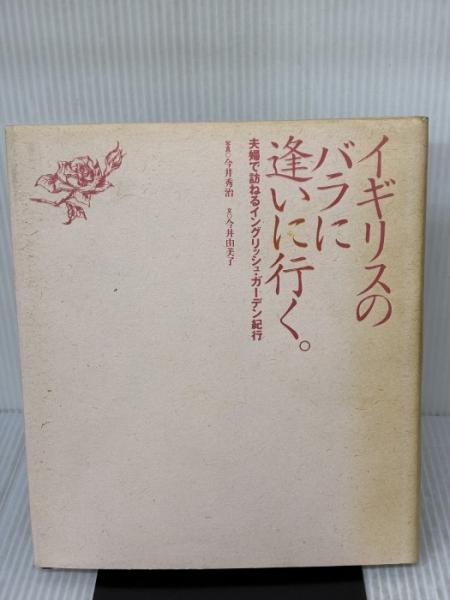 イギリスの
バラに
逢いに行く。
夫婦で訪ねるイングリッシュ・ガーデン紀行
写真◎今井秀治 文◎今井由美子